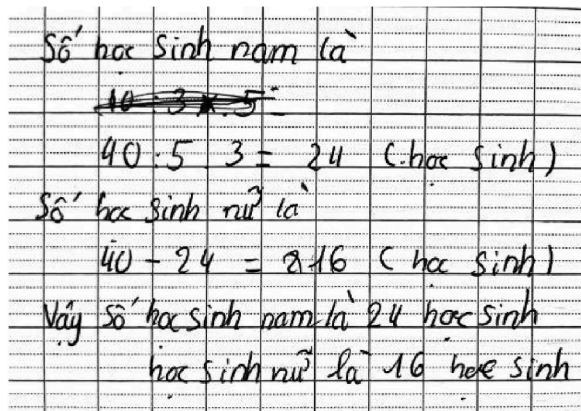 Số học sinh nam là
40 : 5 . 3 = 24 (học sinh)
Số học sinh nữ là
40 - 24 = 16 (học sinh)
Vậy số học sinh nam là 24 học sinh
học sinh nữ là 16 học sinh